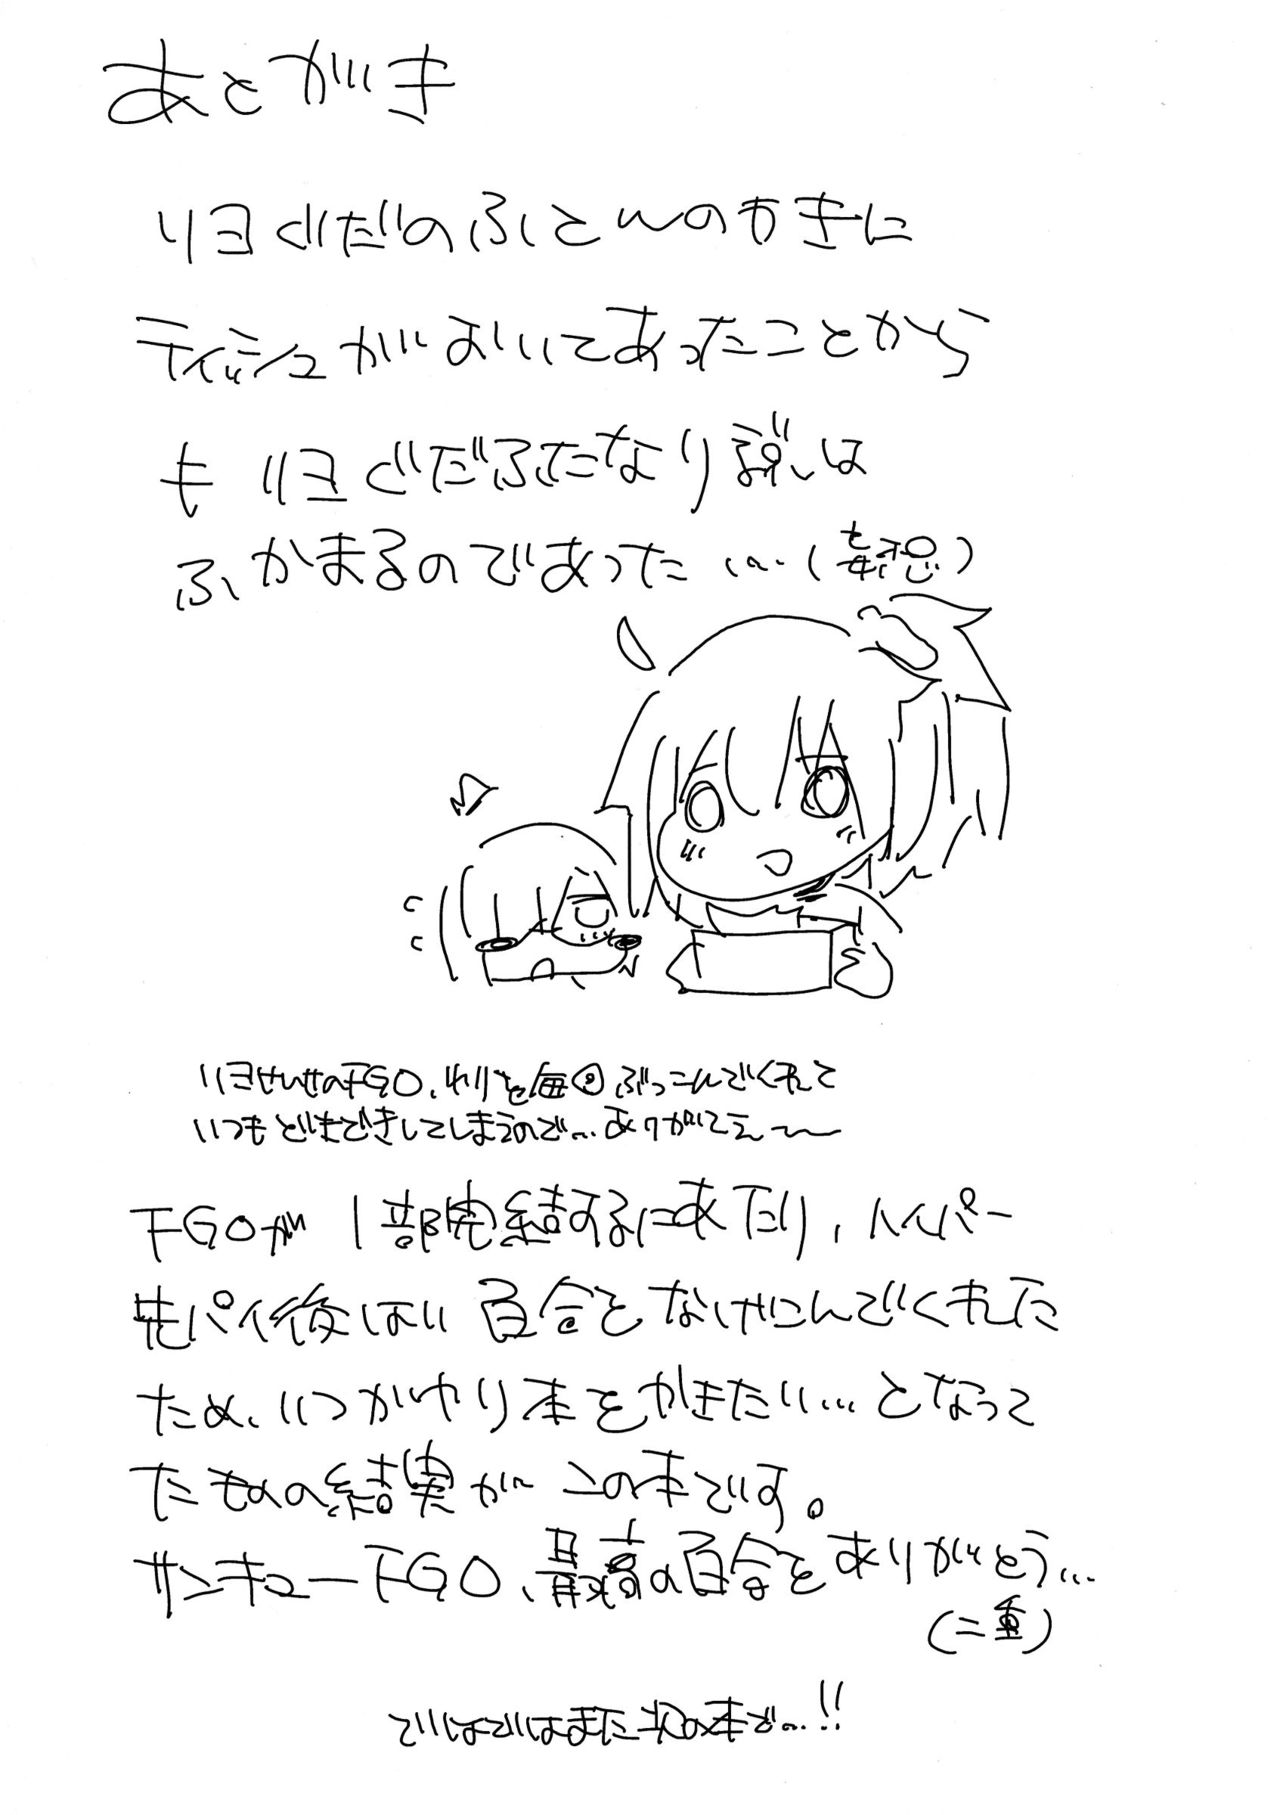 あとがき
リヨぐだのふとんのわきに
ティッシュがおいてあったことから
も リヨぐだふたなり説は
ふかまるのであった…(妄想)
リヨせんせのFGO、わりと毎回ぶっこんでくれて
いつもどきどきしてしまうので…ありがてえ〜
FGOが1部完結するにあたり、ハイパー
先パイ後はい百合をなげこんでくれた
ため、いつかやり本をかきたい…となって
たものの結果がこの本です。
サンキューFGO、最高の百合をありがとう…
(二重)
ではではまた次の本で…!!